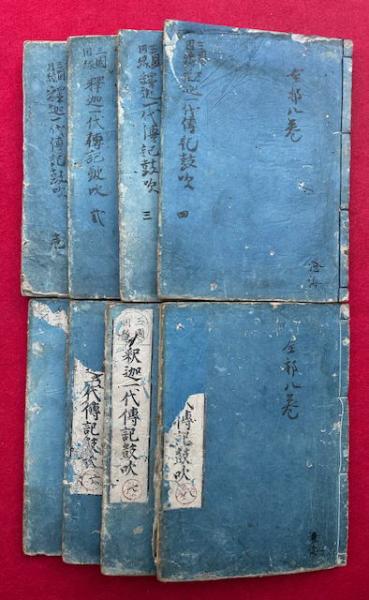 三國
因縁
釋迦一代傳記鼓吹
壱
三國
因縁
釋迦一代傳記鼓吹 貳
三國
因縁
釋迦一代傳記鼓吹 三
三國
釋迦一代傳記鼓吹 四
全部八巻
三
代傳記鼓吹
三國
因縁
釈迦一代傳記鼓吹
七
傳記鼓吹
八
全部八巻